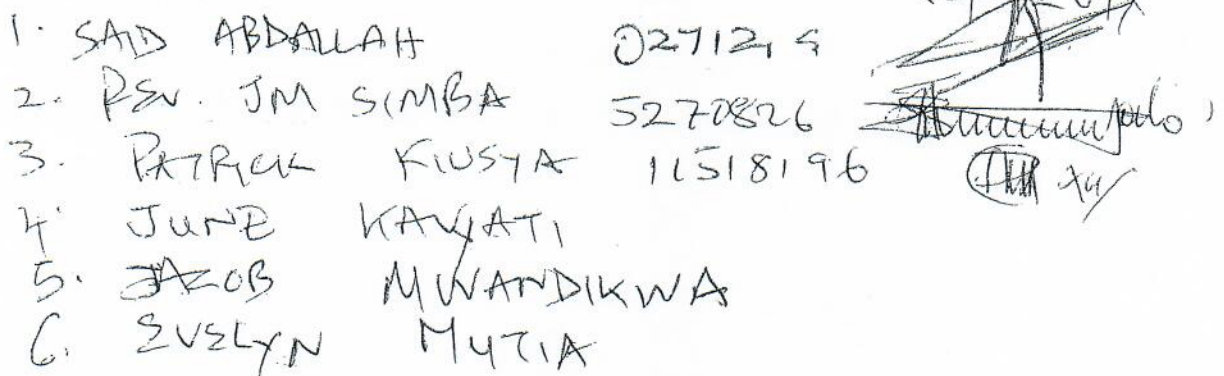 1. SAID ABDALLAH
2. REV. JM SIMBA 5270826
3. PATRICK KIUSYA 11518196
4. JUNE KAVYATI
5. JACOB MWANDIKWA
6. EVELYN MUTIA